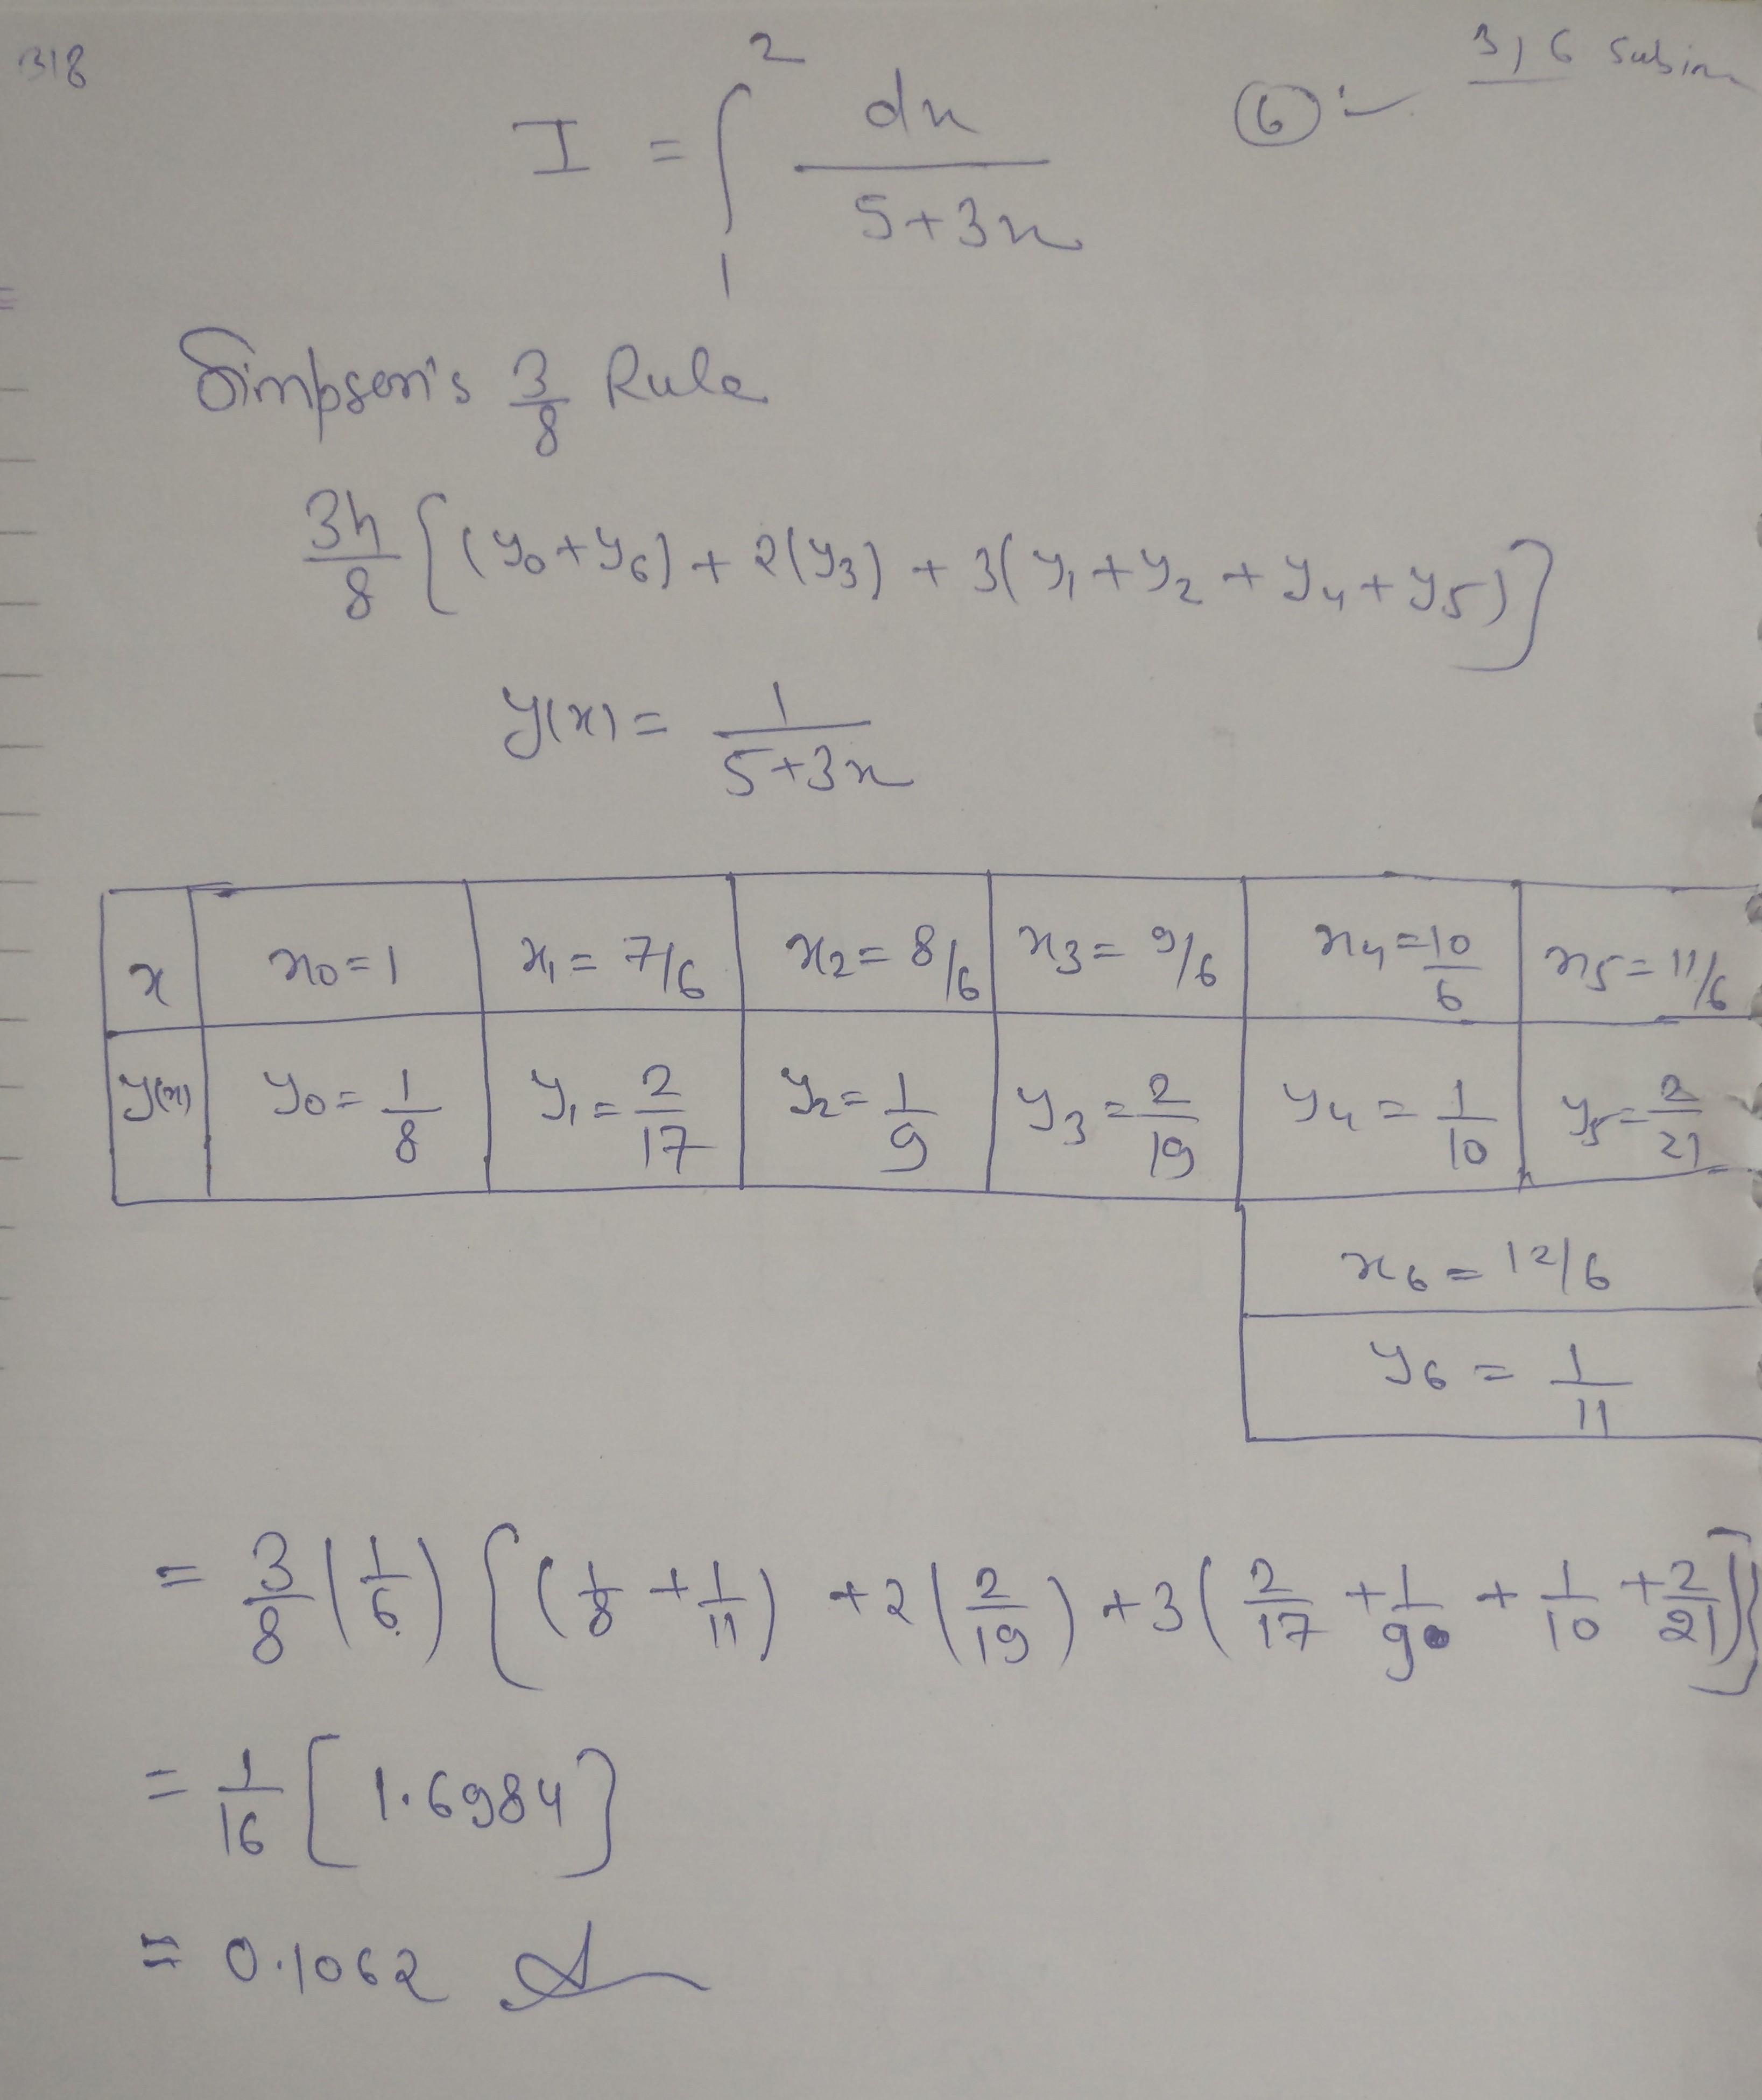 3/8
3, 6
I = ∫₁² dx / (5+3x) ⑥:-
Simpson's 3/8 Rule
3h/8 {(y₀+y₆) + 2(y₃) + 3(y₁+y₂+y₄+y₅)}
y(x) = 1/(5+3x)
x x₀=1 x₁=7/6 x₂=8/6 x₃=9/6 x₄=10/6 x₅=11/6
y(x) y₀=1/8 y₁=2/17 y₂=1/9 y₃=2/19 y₄=1/10 y₅=2/21
x₆=12/6
y₆=1/11
= 3/8 (1/6) {(1/8 + 1/11) + 2(2/19) + 3(2/17 + 1/9 + 1/10 + 2/21)}
= 1/16 [1.6984]
= 0.1062